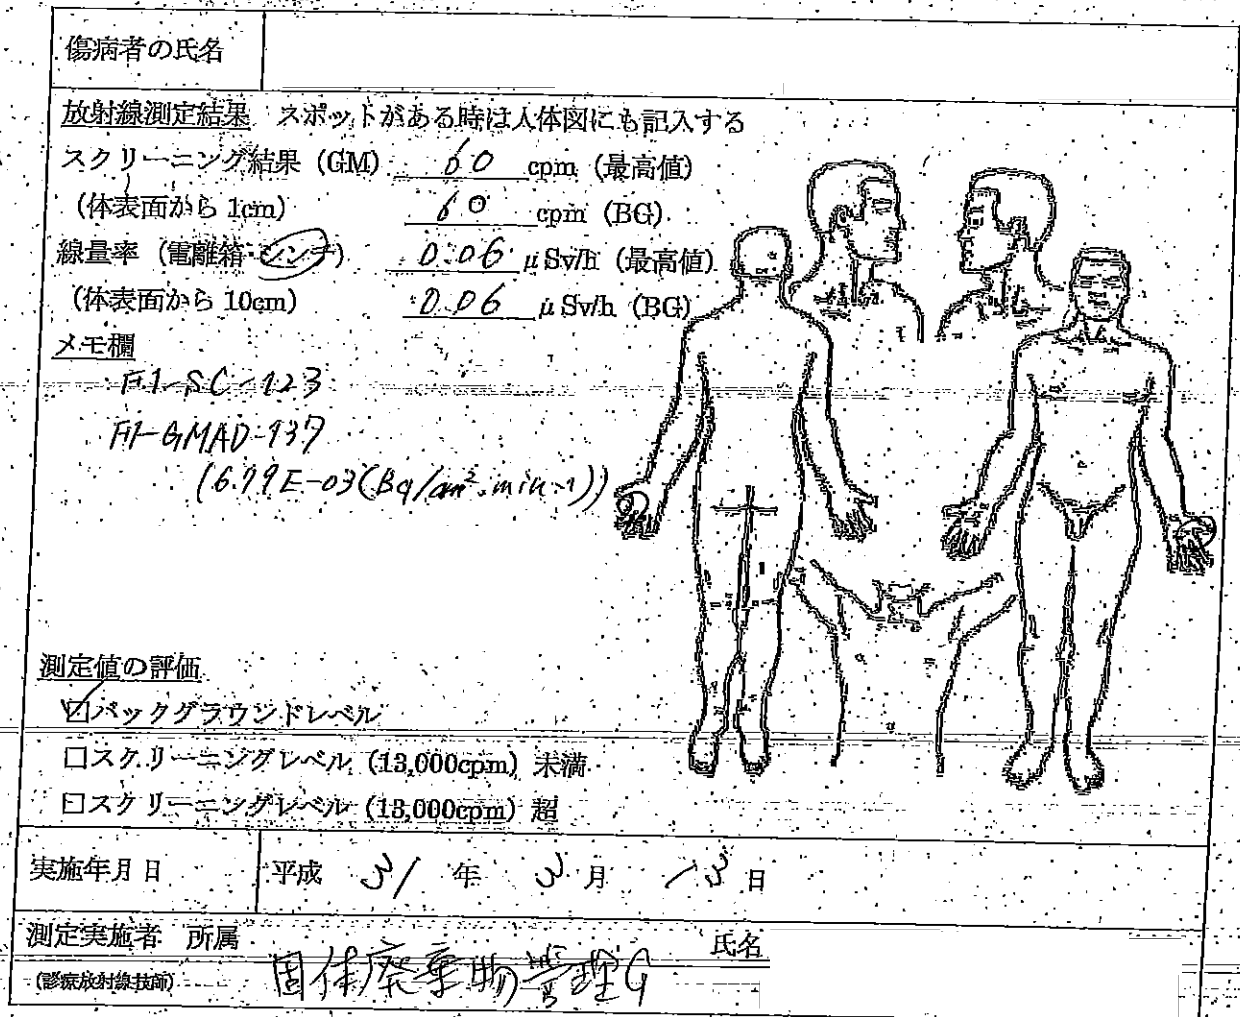 傷病者の氏名
放射線測定結果 スポットがある時は人体図にも記入する
スクリーニング結果 (GM) 60 cpm (最高値)
(体表面から 1cm) 60 cpm (BG)
線量率 (電離箱・シンチ) 0.06 μSv/h (最高値)
(体表面から 10cm) 0.06 μSv/h (BG)
メモ欄
F1-SC-123
F1-GMAD-137
(6.79E-03(Bq/cm².min-1))
測定値の評価
☑バックグラウンドレベル
□スクリーニングレベル (13,000cpm) 未満
□スクリーニングレベル (13,000cpm) 超
実施年月日 平成 31 年 3 月 13 日
測定実施者 所属 固体廃棄物管理G 氏名
(診療放射線技師)